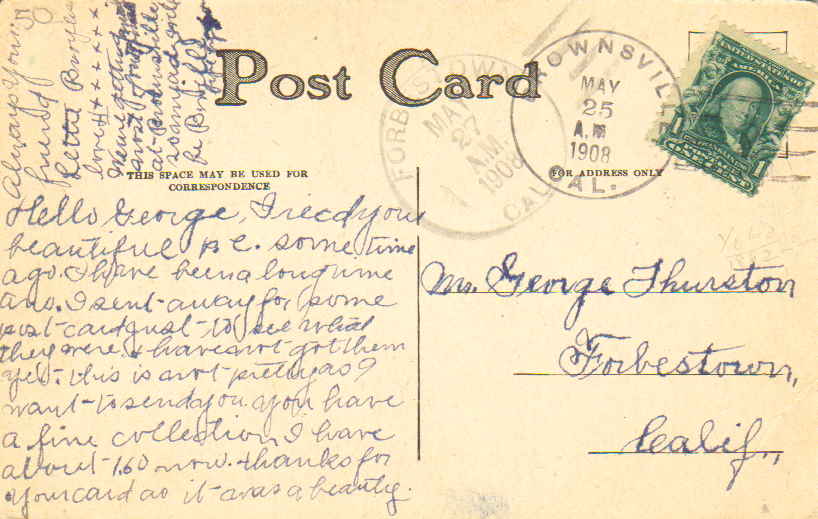 Post Card
THIS SPACE MAY BE USED FOR
CORRESPONDENCE
FOR ADDRESS ONLY
BROWNSVILLE
MAY
25
A.M
1908
CAL.
FORBESTOWN
MAY
27
A.M.
1908
CAL
Hello George, I recd your
beautiful p.c. some time
ago. I have been a long time
ans. I sent away for some
post-card just to see what
they were. & have not got them
yet. this is not pretty as I
want to send you. you have
a fine collection, I have
about 160 now. thanks for
your card as it was a beauty.
Always Your
friend
Letta
love
were getting
at Brownsville
so many
be
50
Mr. George Thurston
Forbestown,
Calif.,
UNITED STATES OF
AMERICA
1
1